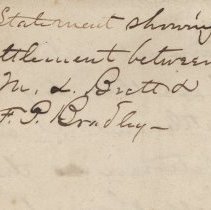 Statement showing
ettlement between
M. L. Brett &
F. P. Bradley—